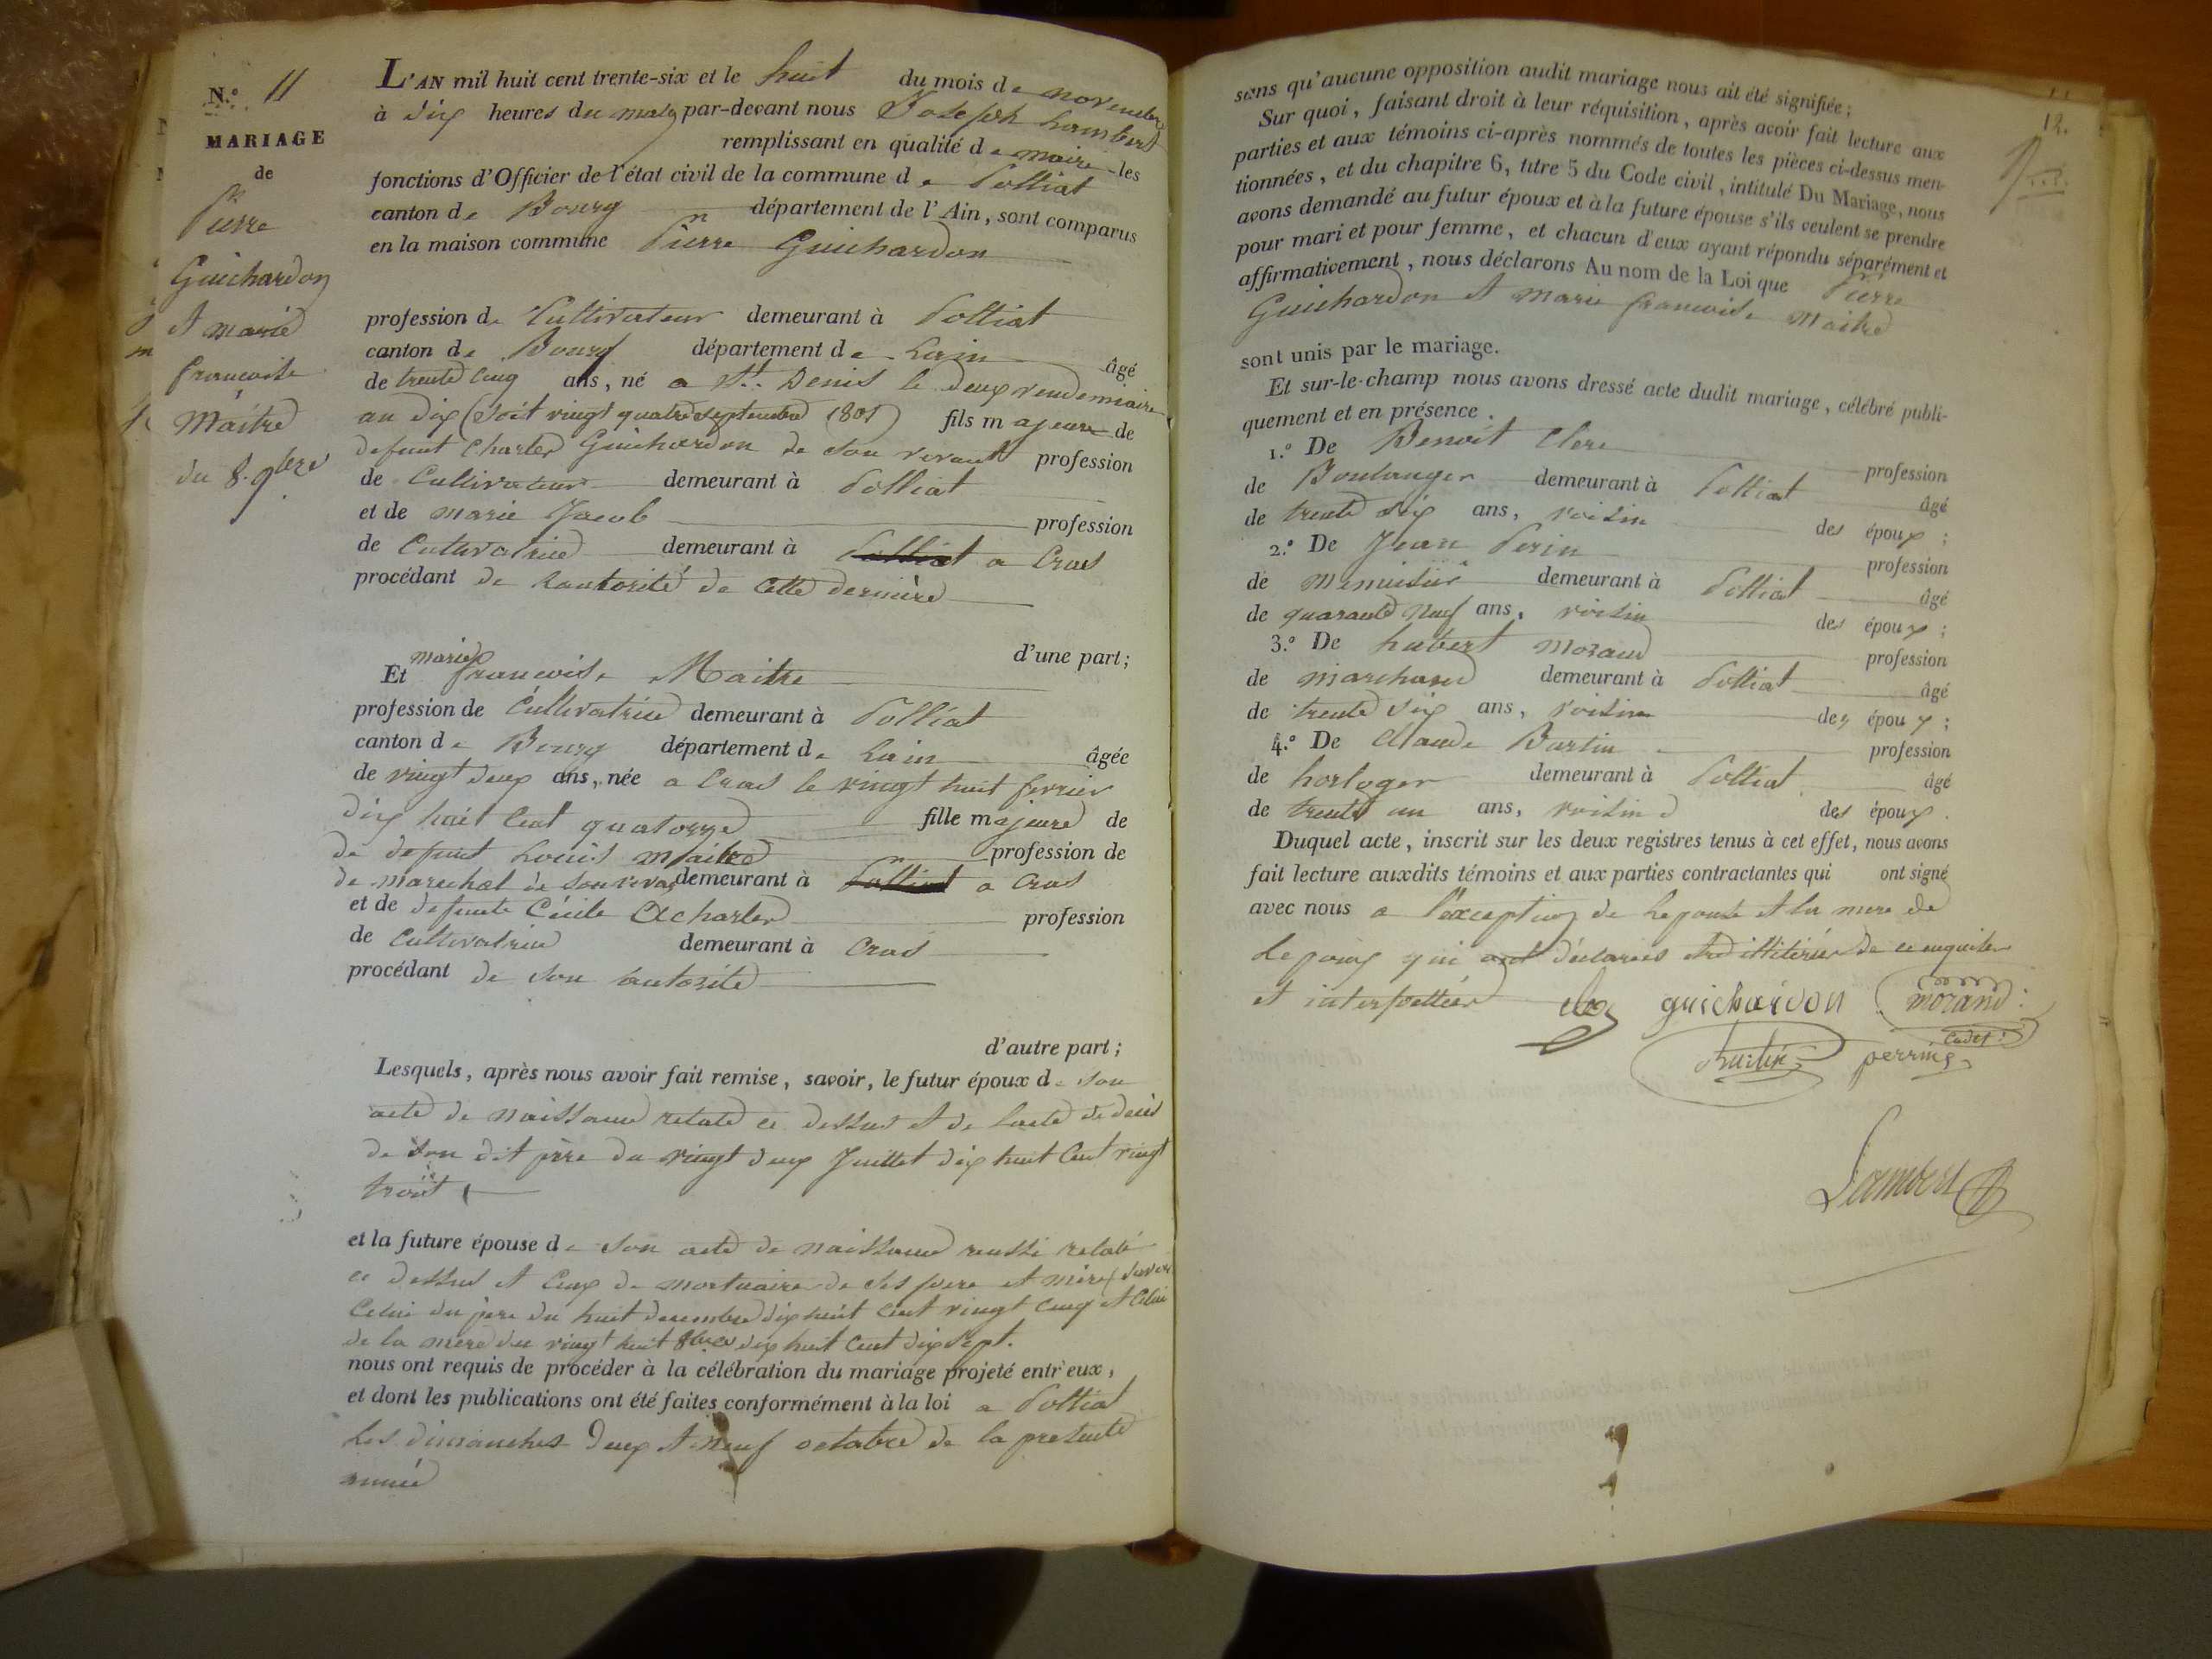 N.o 11
MARIAGE
de
Pierre
Guichardon
et marie
francoise
Maitre
du 8. 9bre
L'AN mil huit cent trente-six et le huit du mois de novembre
à dix heures du matin par-devant nous Joseph Lambert
remplissant en qualité de maire les
fonctions d'Officier de l'état civil de la commune de Polliat
canton de Bourg département de l'Ain, sont comparus
en la maison commune Pierre Guichardon
profession de Cultivateur demeurant à Polliat
canton de Bourg département de Lain âgé
de trente cinq ans, né a St. Denis le deux vendemiaire
an dix (soit vingt quatre septembre 1801) fils majeur de
defunt Charles Guichardon de son vivant profession
de Cultivateur demeurant à Polliat
et de marie Jacob profession
de Cultivatrice demeurant à Polliat a Cras
procédant de Lautorité de cette dernière
d'une part;
Et marie francoise Maitre
profession de Cultivatrice demeurant à Polliat
canton de Bourg département de Lain âgée
de vingt deux ans, née a Cras le vingt huit fevrier
dix huit cent quatorze fille majeure de
de defunt Louis Maitre profession de
de marechal de son vivant demeurant à Polliat a Cras
et de defunte Cécile profession
de Cultivatrice demeurant à Cras
procédant de son autorité
d'autre part;
Lesquels, après nous avoir fait remise, savoir, le futur époux de son
acte de naissance relaté ci dessus et de lacte de décès
de son dit père du vingt deux Juillet dix huit cent vingt
trois
et la future épouse de son acte de naissance aussi relaté
ci dessus et ceux de mortuaire de ses pere et mère savoir
Celui du père du huit decembre dix huit cent vingt cinq et celui
de la mere du vingt huit 8bre dix huit cent dix sept.
nous ont requis de procéder à la célébration du mariage projeté entr'eux,
et dont les publications ont été faites conformément à la loi a Polliat
les dimanches deux et neuf octobre de la presente
année
12.
sans qu'aucune opposition audit mariage nous ait été signifiée;
Sur quoi, faisant droit à leur réquisition, après avoir fait lecture aux
parties et aux témoins ci-après nommés de toutes les pièces ci-dessus men-
tionnées, et du chapitre 6, titre 5 du Code civil, intitulé Du Mariage, nous
avons demandé au futur époux et à la future épouse s'ils veulent se prendre
pour mari et pour femme, et chacun d'eux ayant répondu séparément et
affirmativement, nous déclarons Au nom de la Loi que Pierre
Guichardon et marie francoise Maitre
sont unis par le mariage.
Et sur-le-champ nous avons dressé acte dudit mariage, célébré publi-
quement et en présence.
1.o De Benoit Clere profession
de Boulanger demeurant à Polliat âgé
de trente six ans, voisin des époux;
2.o De Jean Perin profession
de menuisier demeurant à Polliat âgé
de quarante neuf ans, voisin des époux;
3.o De hubert Morand profession
de marchand demeurant à Polliat âgé
de trente six ans, voisin des époux;
4.o De Claude Burtin profession
de horloger demeurant à Polliat âgé
de trente un ans, voisin des époux.
Duquel acte, inscrit sur les deux registres tenus à cet effet, nous avons
fait lecture auxdits témoins et aux parties contractantes qui ont signé
avec nous a l'exception de lepouse et la mere de
lepoux qui ont déclarées de ce enquises
et interpellées guichardon morand
cadet
Burtin perrin
Lambert